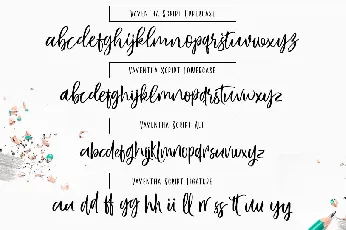 Vaventha Script Lowercase
abcdefghijklmnopqrstuvwxyz
Vaventha Script Lowercase
abcdefghijklmnopqrstuvwxyz
Vaventha Script Alt
abcdefghijklmnopqrsuvwxyz
Vaventha Script Ligature
aa dd ff gg hh ii ll rr ss tt uu yy